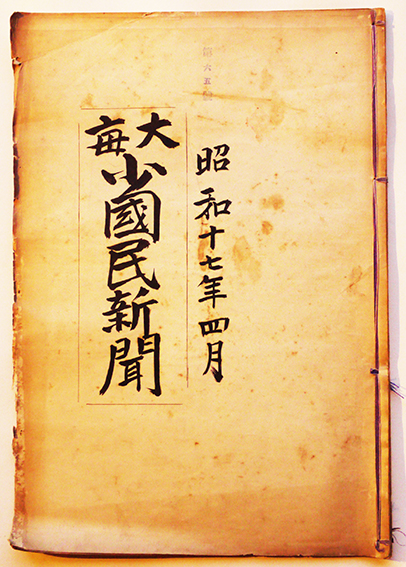 第六五號
昭和十七年四月
大毎
少國民新聞